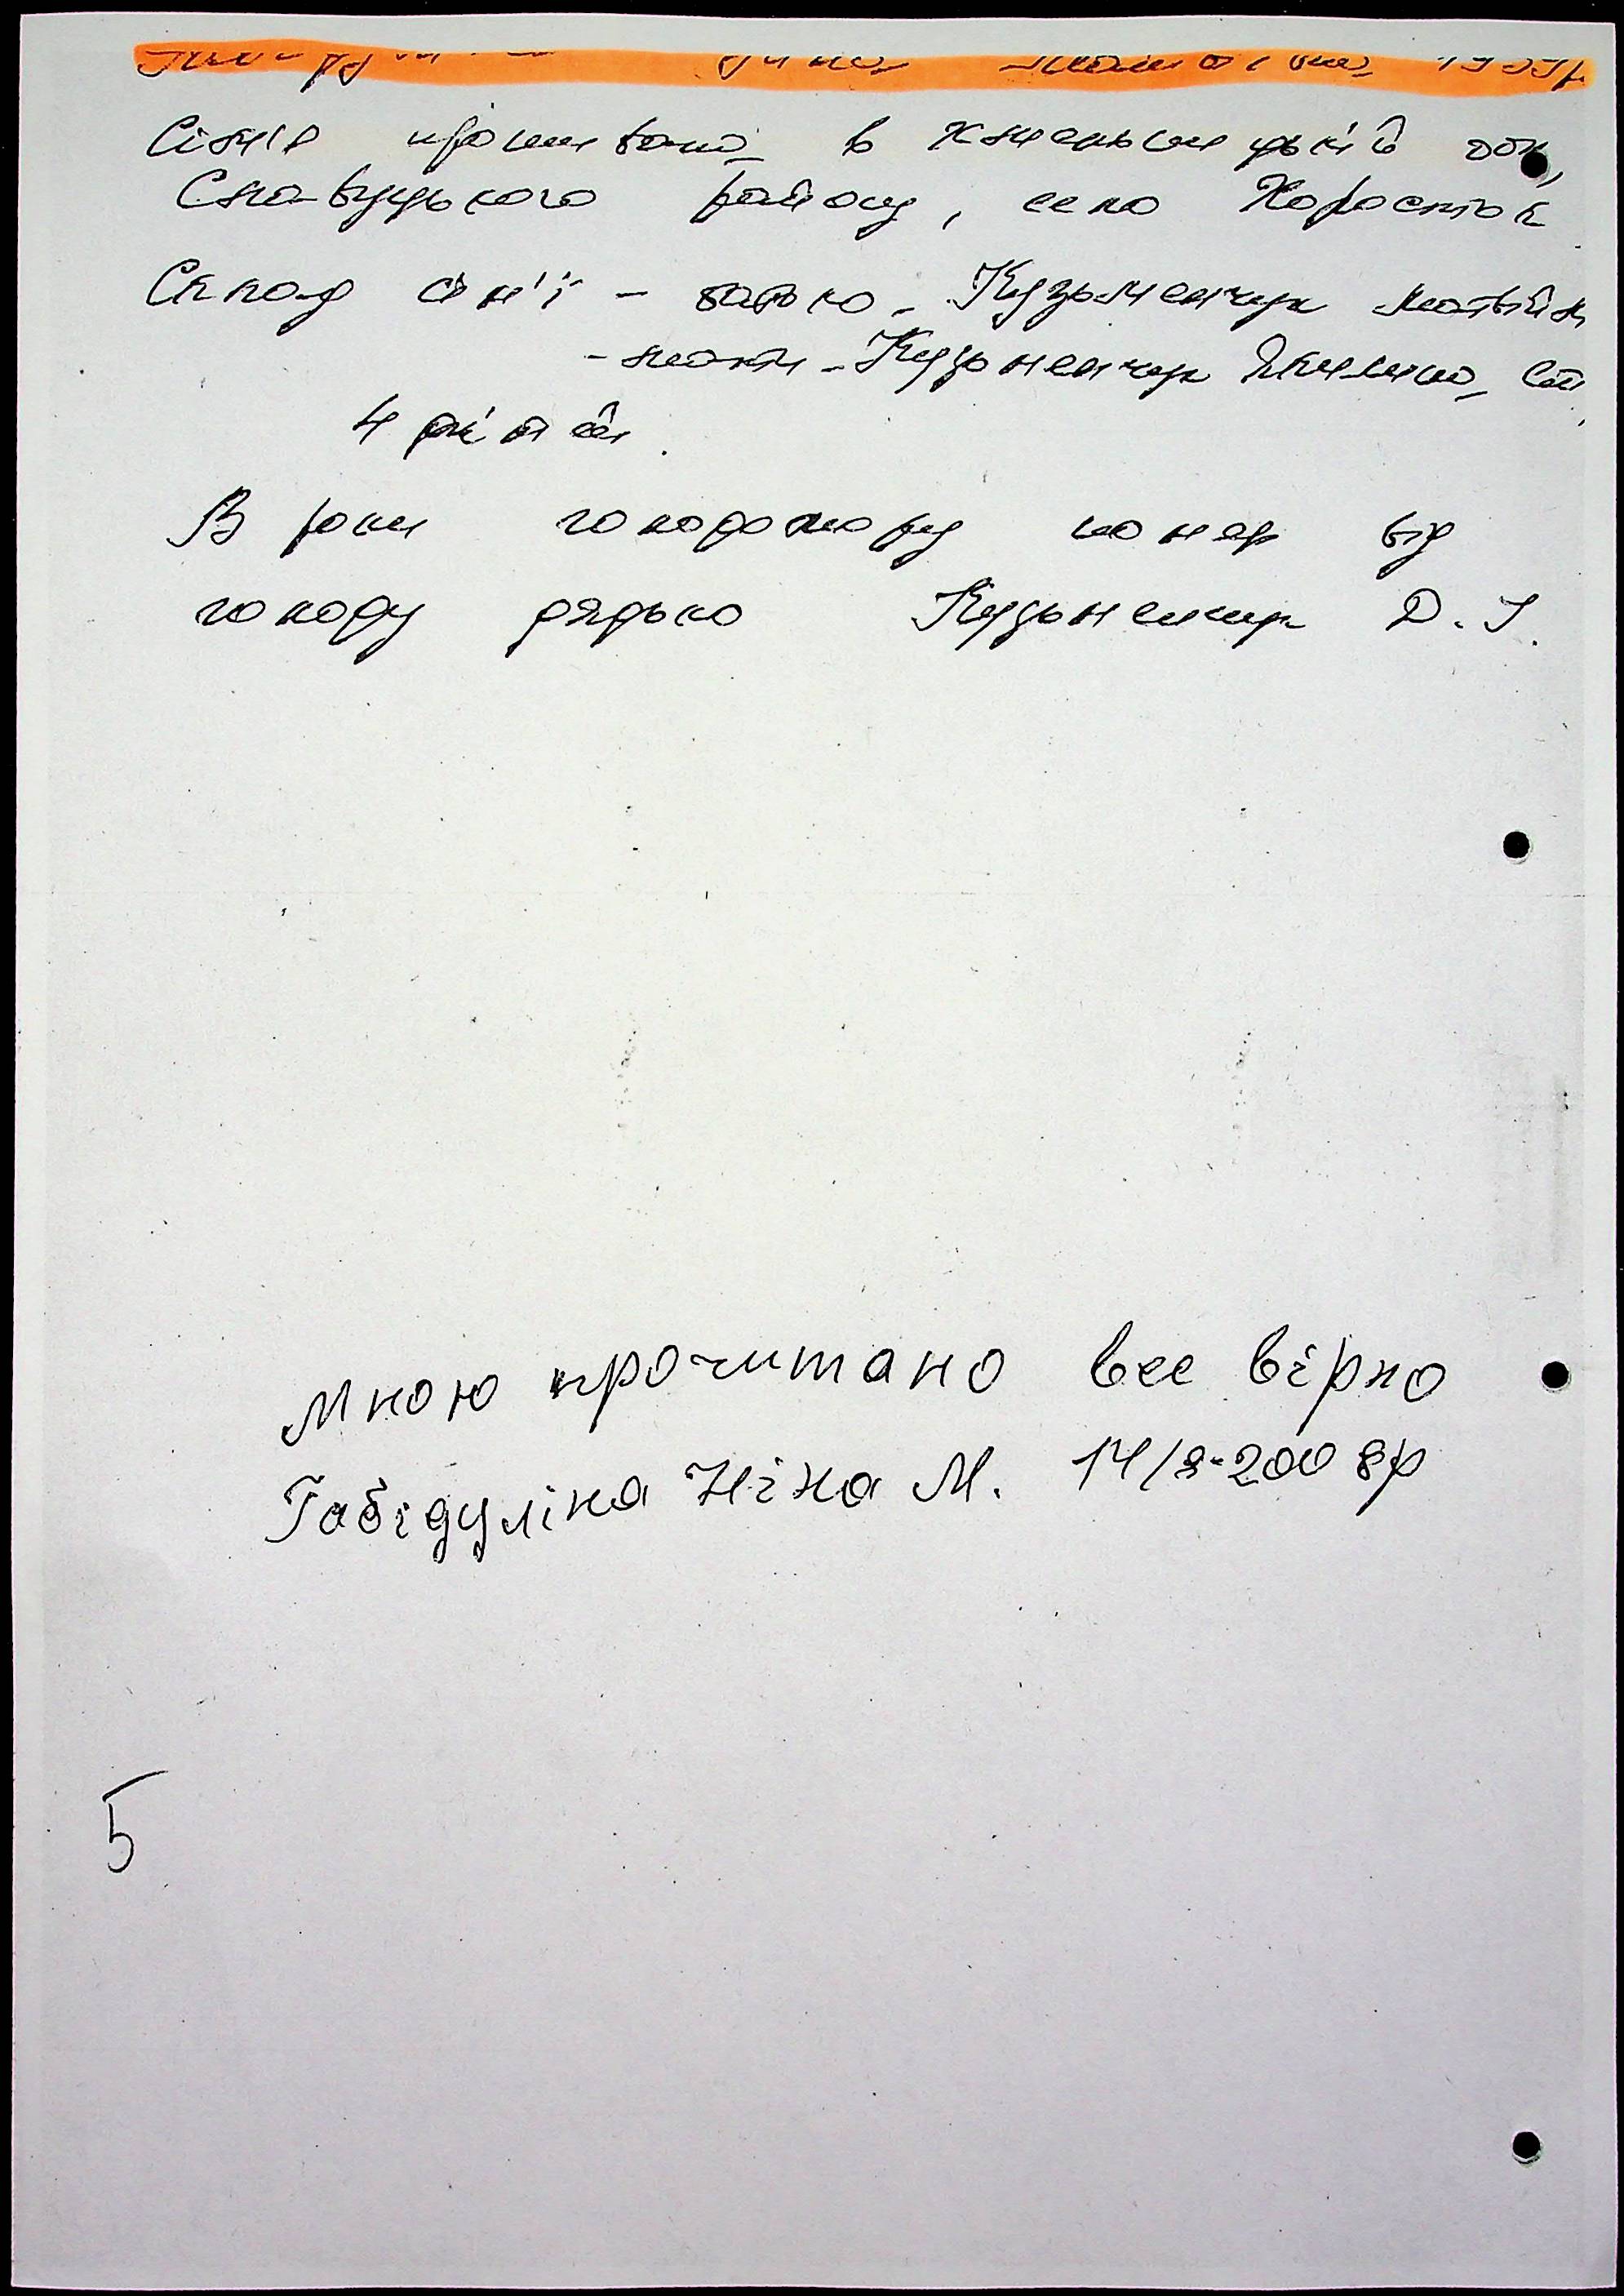 Ніна Матвіївна
Сім'я проживала в Хмельницькій обл,
Славутського району, село Хоросток
Склад сім'ї - батько - Кузьменчук Матвій
- мати - Кузьменчук Якилина
4 дітей.
В роки голодомору помер від
голоду дядько Кузьменчук Д. І.
Мною прочитано все вірно
Габідуліна Ніна М. 14/8-2008р
5